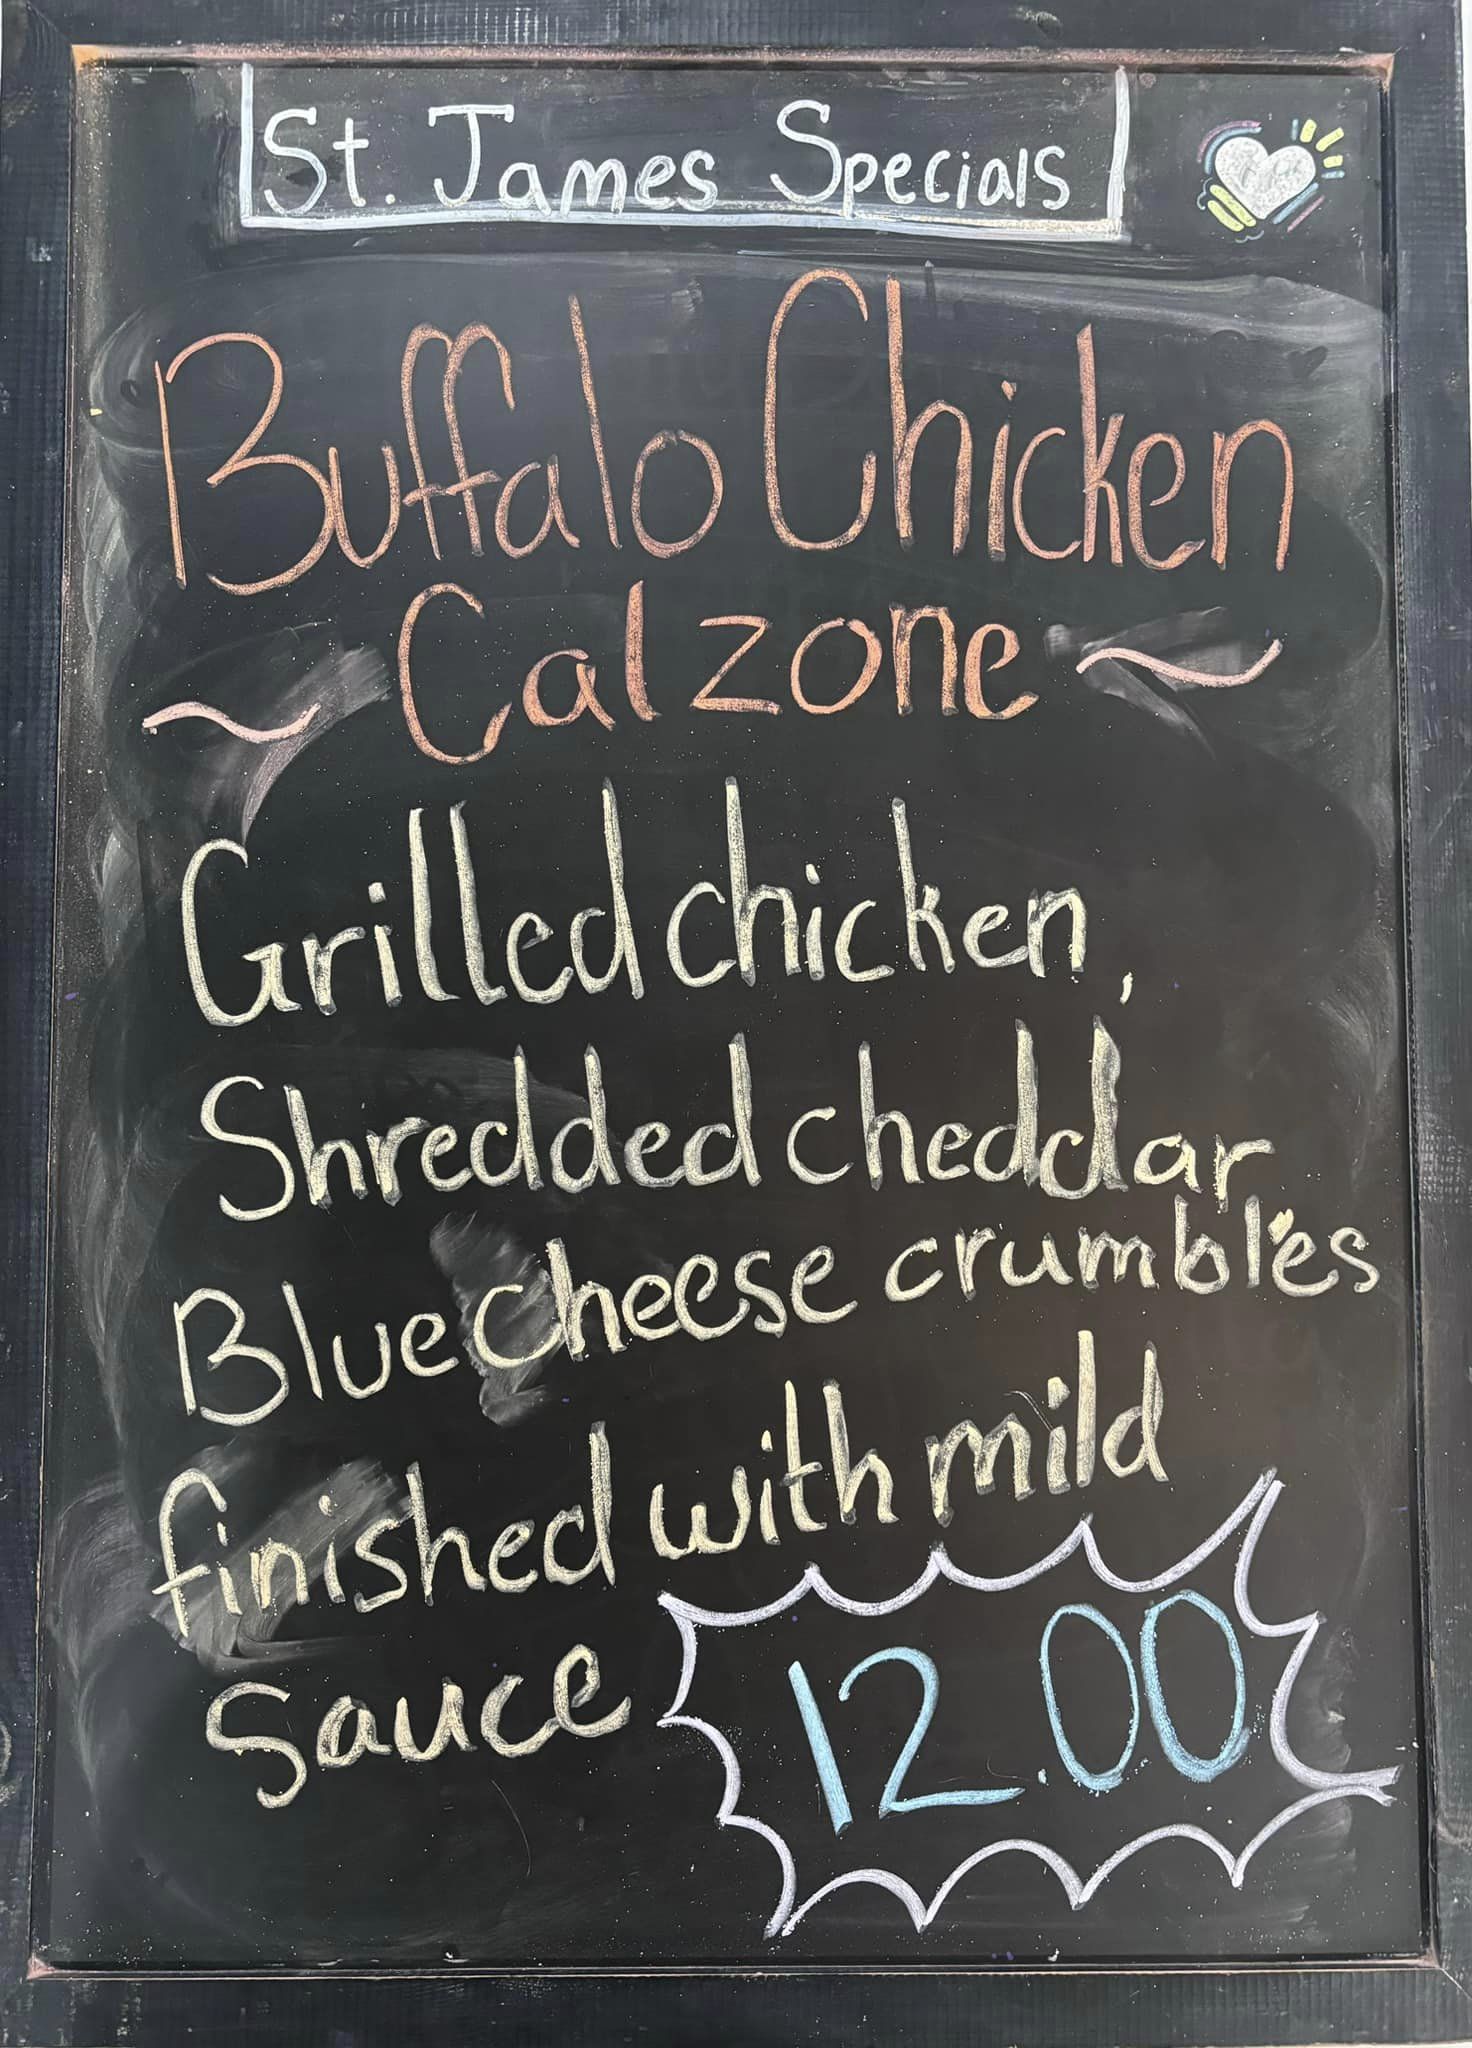 St. James Specials
Buffalo Chicken
Calzone
Grilled chicken,
Shredded cheddar
Blue cheese crumbles
finished with mild
sauce
12.00